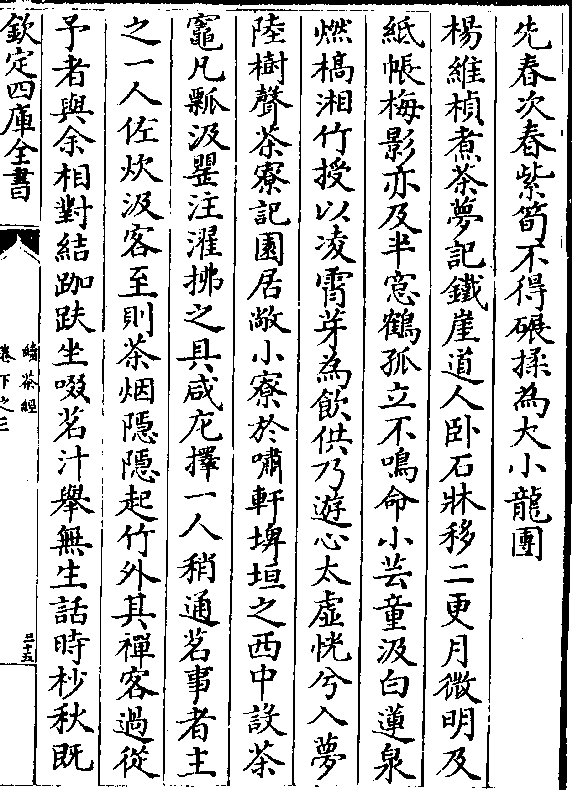 先春次春紫筍不得碾揉為大小龍團
楊維楨煮茶夢記鐵崖道人卧石牀移二更月微明及
紙帳梅影亦及半窓鶴孤立不鳴命小芸童汲白蓮泉
燃槁湘竹授以凌霄芽為飲供乃遊心太虛恍兮入夢
陸樹聲茶寮記園居敞小寮於嘯軒埤垣之西中設茶
竈凡瓢汲罌注濯拂之具咸庀擇一人稍通茗事者主
之一人佐炊汲客至則茶烟隠隠起竹外其禪客過從
予者與余相對結跏趺坐啜茗汁舉無生話時杪秋既
欽定四庫全書
續茶經
卷下之三
三十五